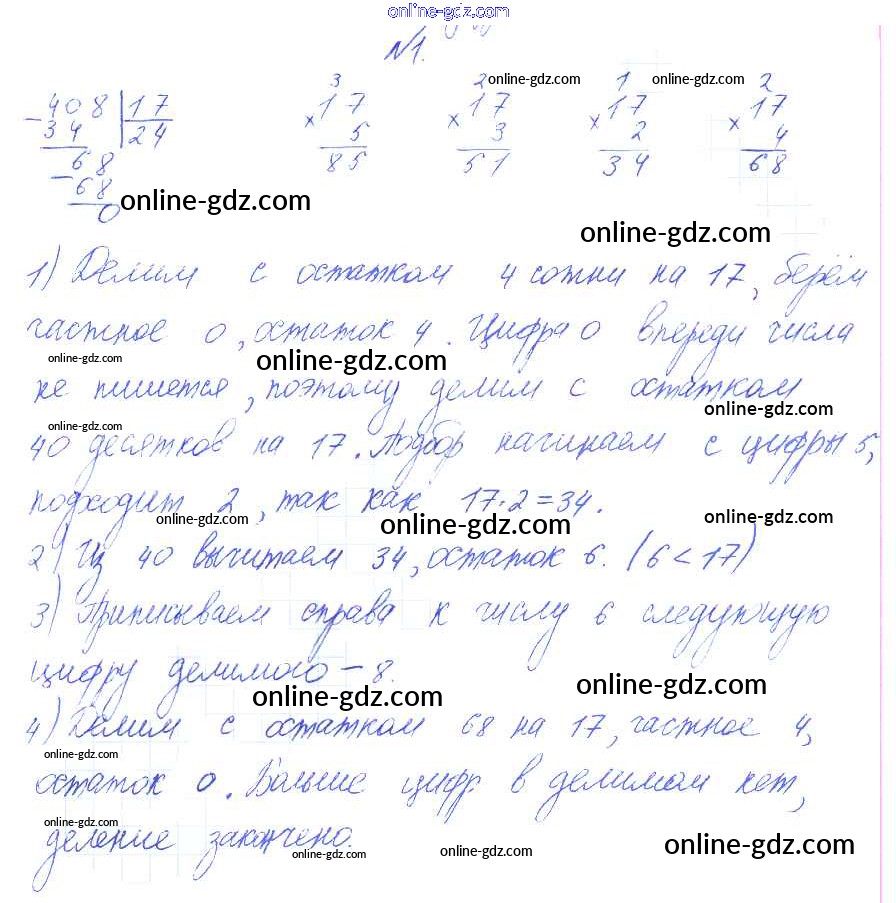 online-gdz.com
№1.
3 2 online-gdz.com 1 online-gdz.com 2
− 408 | 17 × 17 × 17 × 17 × 17
34 24 5 3 2 4
− 68 85 51 34 68
68
0 online-gdz.com
online-gdz.com
1) Делим с остатком 4 сотни на 17, берём
частное 0, остаток 4. Цифра 0 впереди числа
online-gdz.com online-gdz.com
не пишется, поэтому делим с остатком
online-gdz.com online-gdz.com
40 десятков на 17. Подбор начинаем с цифры 5,
подходит 2, так как 17·2=34.
online-gdz.com online-gdz.com online-gdz.com
2) Из 40 вычитаем 34, остаток 6. (6<17)
3) Приписываем справа к числу 6 следующую
цифру делимого – 8.
online-gdz.com online-gdz.com
4) Делим с остатком 68 на 17, частное 4,
online-gdz.com
остаток 0. Больше цифр в делимом нет,
online-gdz.com
деление закончено.
online-gdz.com online-gdz.com online-gdz.com